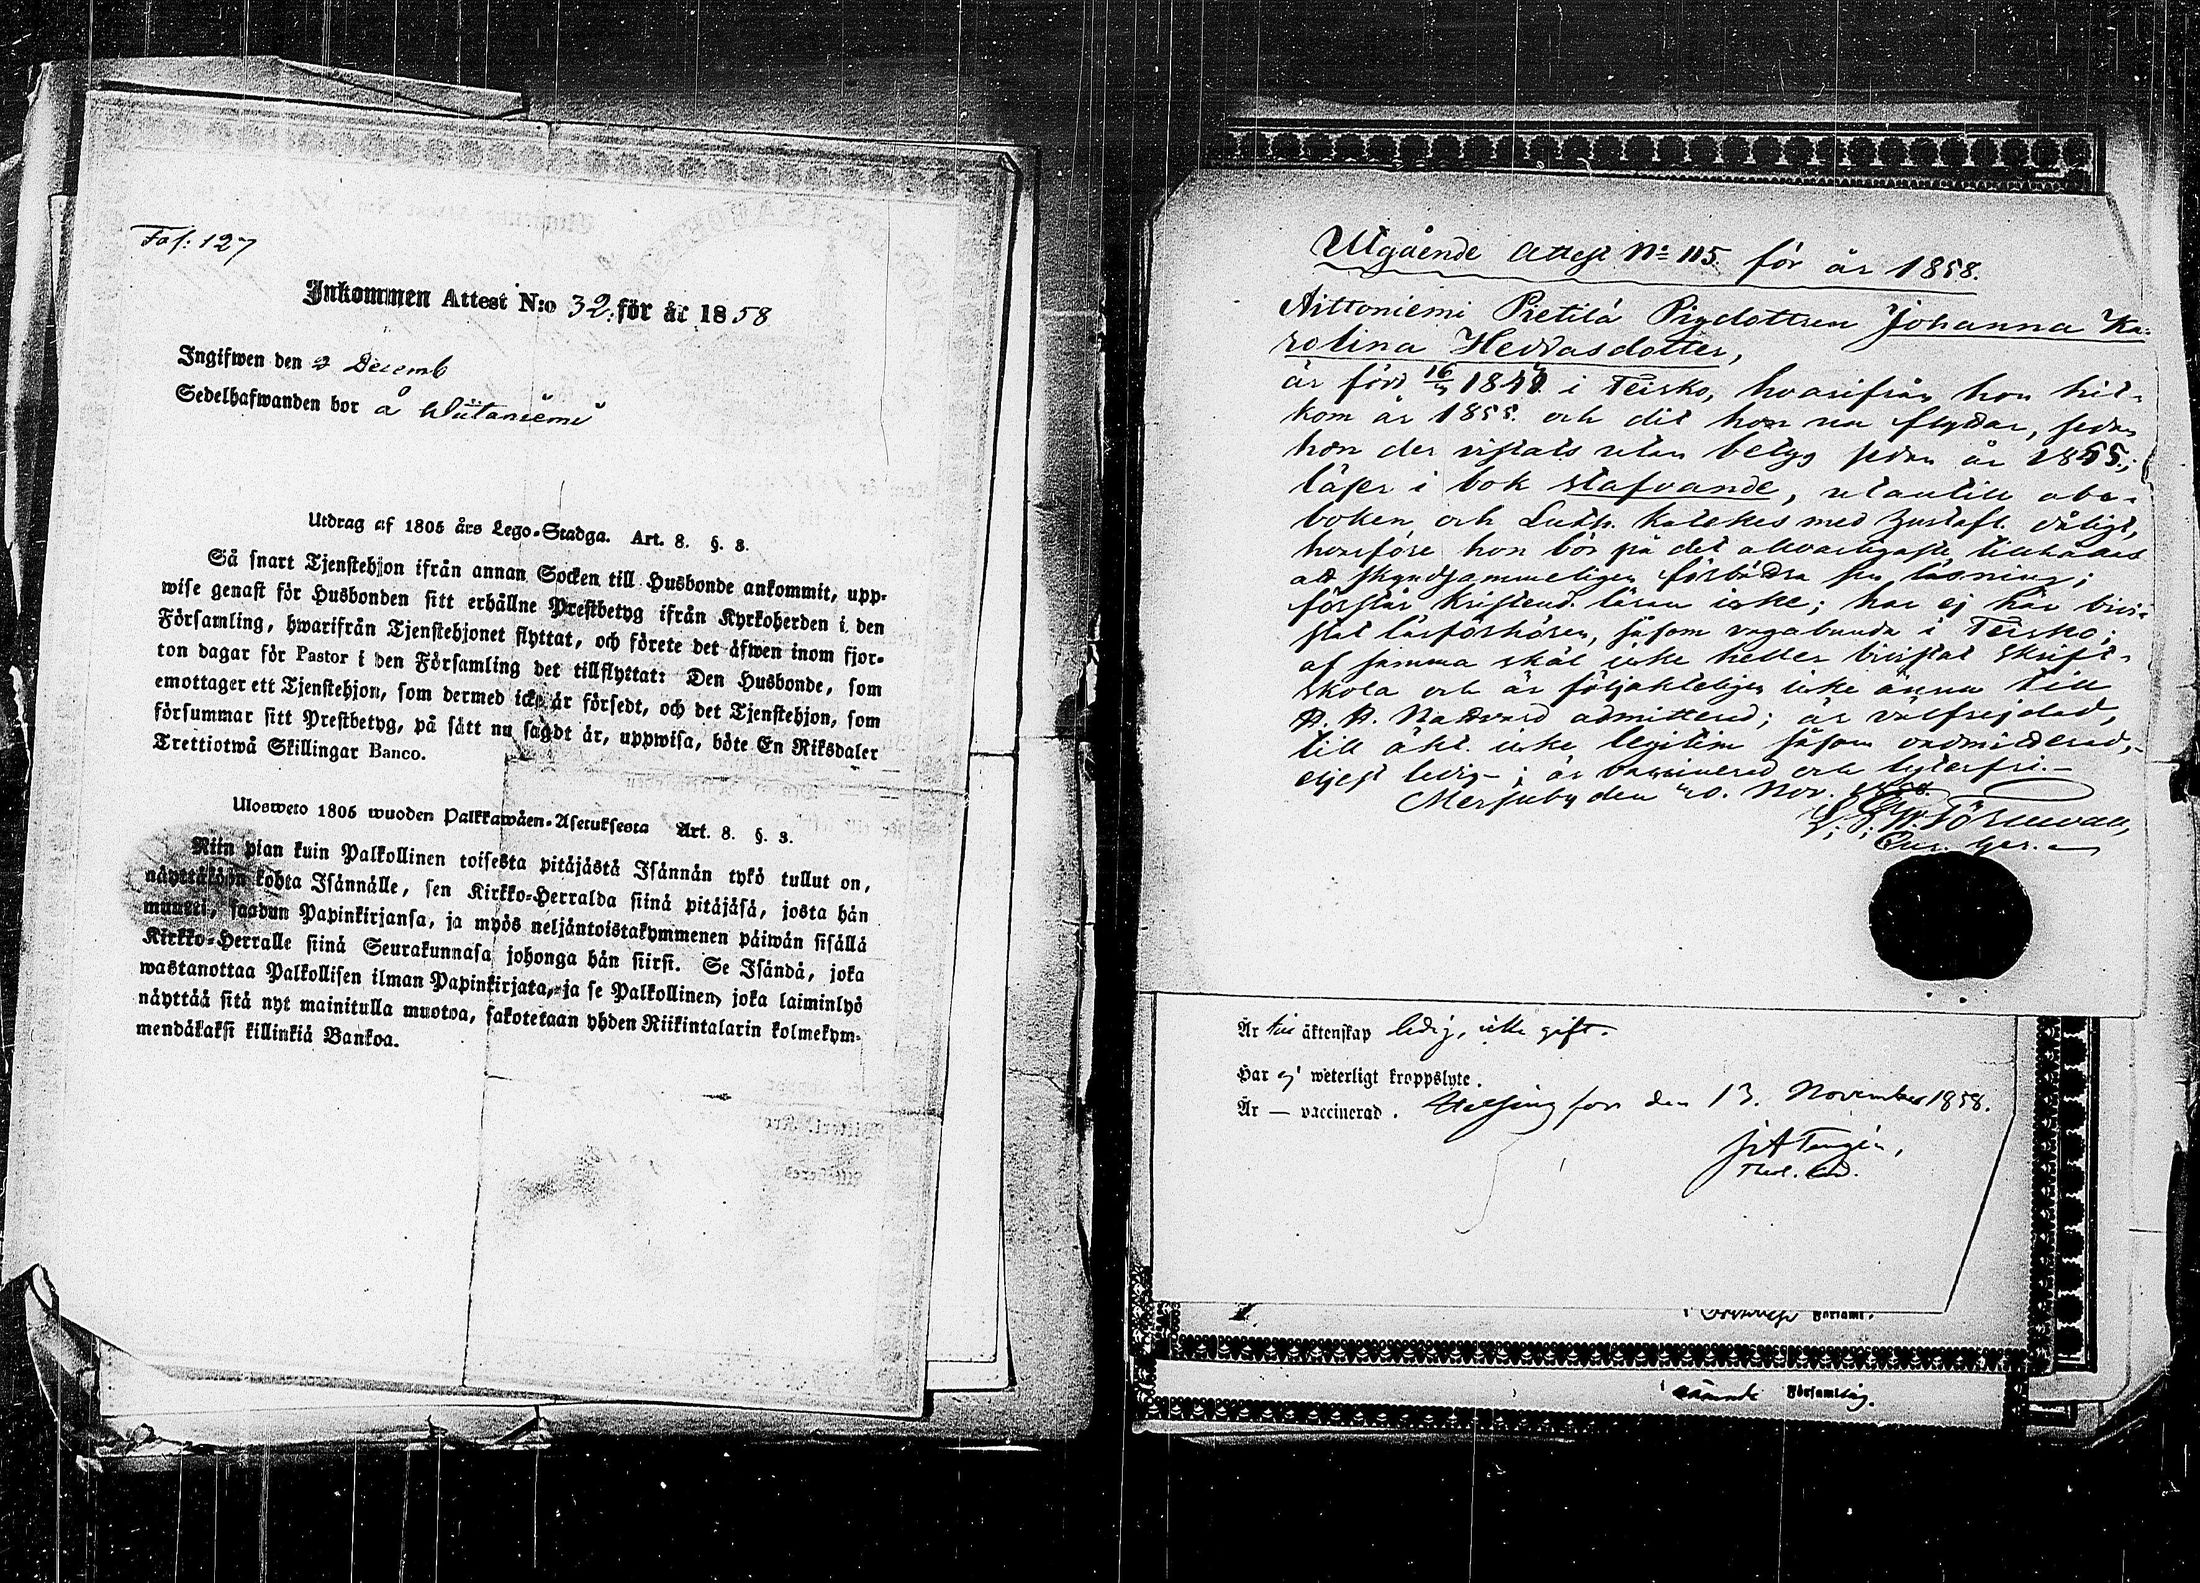 Fol: 127
Inkommen Attest N:o 32. för år 1858
Ingifwen den 2 Decemb
Sedelhafwanden bor å Wiitaniemi
Utdrag af 1805 års Lego-Stadga. Art. 8. §. 3.
Så snart Tjenstehjon ifrån annan Socken till Husbonde ankommit, upp-
wise genast för Husbonden sitt erhållne Prestbetyg ifrån Kyrkoherden i den
Församling, hwarifrån Tjenstehjonet flyttat, och förete det äfwen inom fjor-
ton dagar för Pastor i den Församling det tillflyttat: Den Husbonde, som
emottager ett Tjenstehjon, som dermed icke är försedt, och det Tjenstehjon, som
försummar sitt Prestbetyg, på sätt nu sagdt är, uppwisa, böte En Riksdaler
Trettiotwå Skillingar Banco.
Ulosweto 1805 wuoden Palkkawäen-Asetuksesta Art. 8. §. 3.
Niin pian kuin Palkollinen toisesta pitäjästä Isännän tykö tullut on,
näyttäköön kohta Isännälle, sen Kirkko-Herralda siinä pitäjäsä, josta hän
muutti, saadun Papinkirjansa, ja myös neljäntoistakymmenen päiwän sisällä
Kirkko-Herralle siinä Seurakunnasa johonga hän siirsi. Se Isändä, joka
wastanottaa Palkollisen ilman Papinkirjata, ja se Palkollinen, joka laiminlyö
näyttää sitä nyt mainitulla muotoa, sakotetaan yhden Riikintalarin kolmekym-
mendäkaksi killinkiä Bankoa.
Utgående Attest No 115. för år 1858.
Aittoniemi Pietilä Pigdottren Johanna Ka-
rolina Hedvasdotter,
är född 16/ 184 i Teisko, hvarifrån hon hit-
kom år 1855. och dit hon nu flyttar, sedan
hon der vistats utan betyg sedan år 1855.;
läser i bok stafvande, utantill abc-
boken och Luth. Katekes med hustafl. dåligt,
hvarföre hon bör på det allvarligaste tillhållas
att skyndsammeligen förbättra sin läsning;
förstår Kristend. läran icke; har ej här bevi-
stat läsförhören, såsom vagabunda i Teisko;
af samma skäl icke heller bevistat Skrift-
skola och är följakteligen icke ännu till
H. H. Nattvard admitterad; är välfrejdad,
till äkt. icke legitim såsom oadmitterad,
eljest ledig; är vaccinerad och lytesfri.
Messuby den 20. Nov. 1858.
Törnwall,
Är till äktenskap ledig, icke gift.
Har ej weterligt kroppslyte.
Är — vaccinerad. Helsingfors den 13. November 1858.
Theol. Cand.
Församl.
i nämnde Församling.